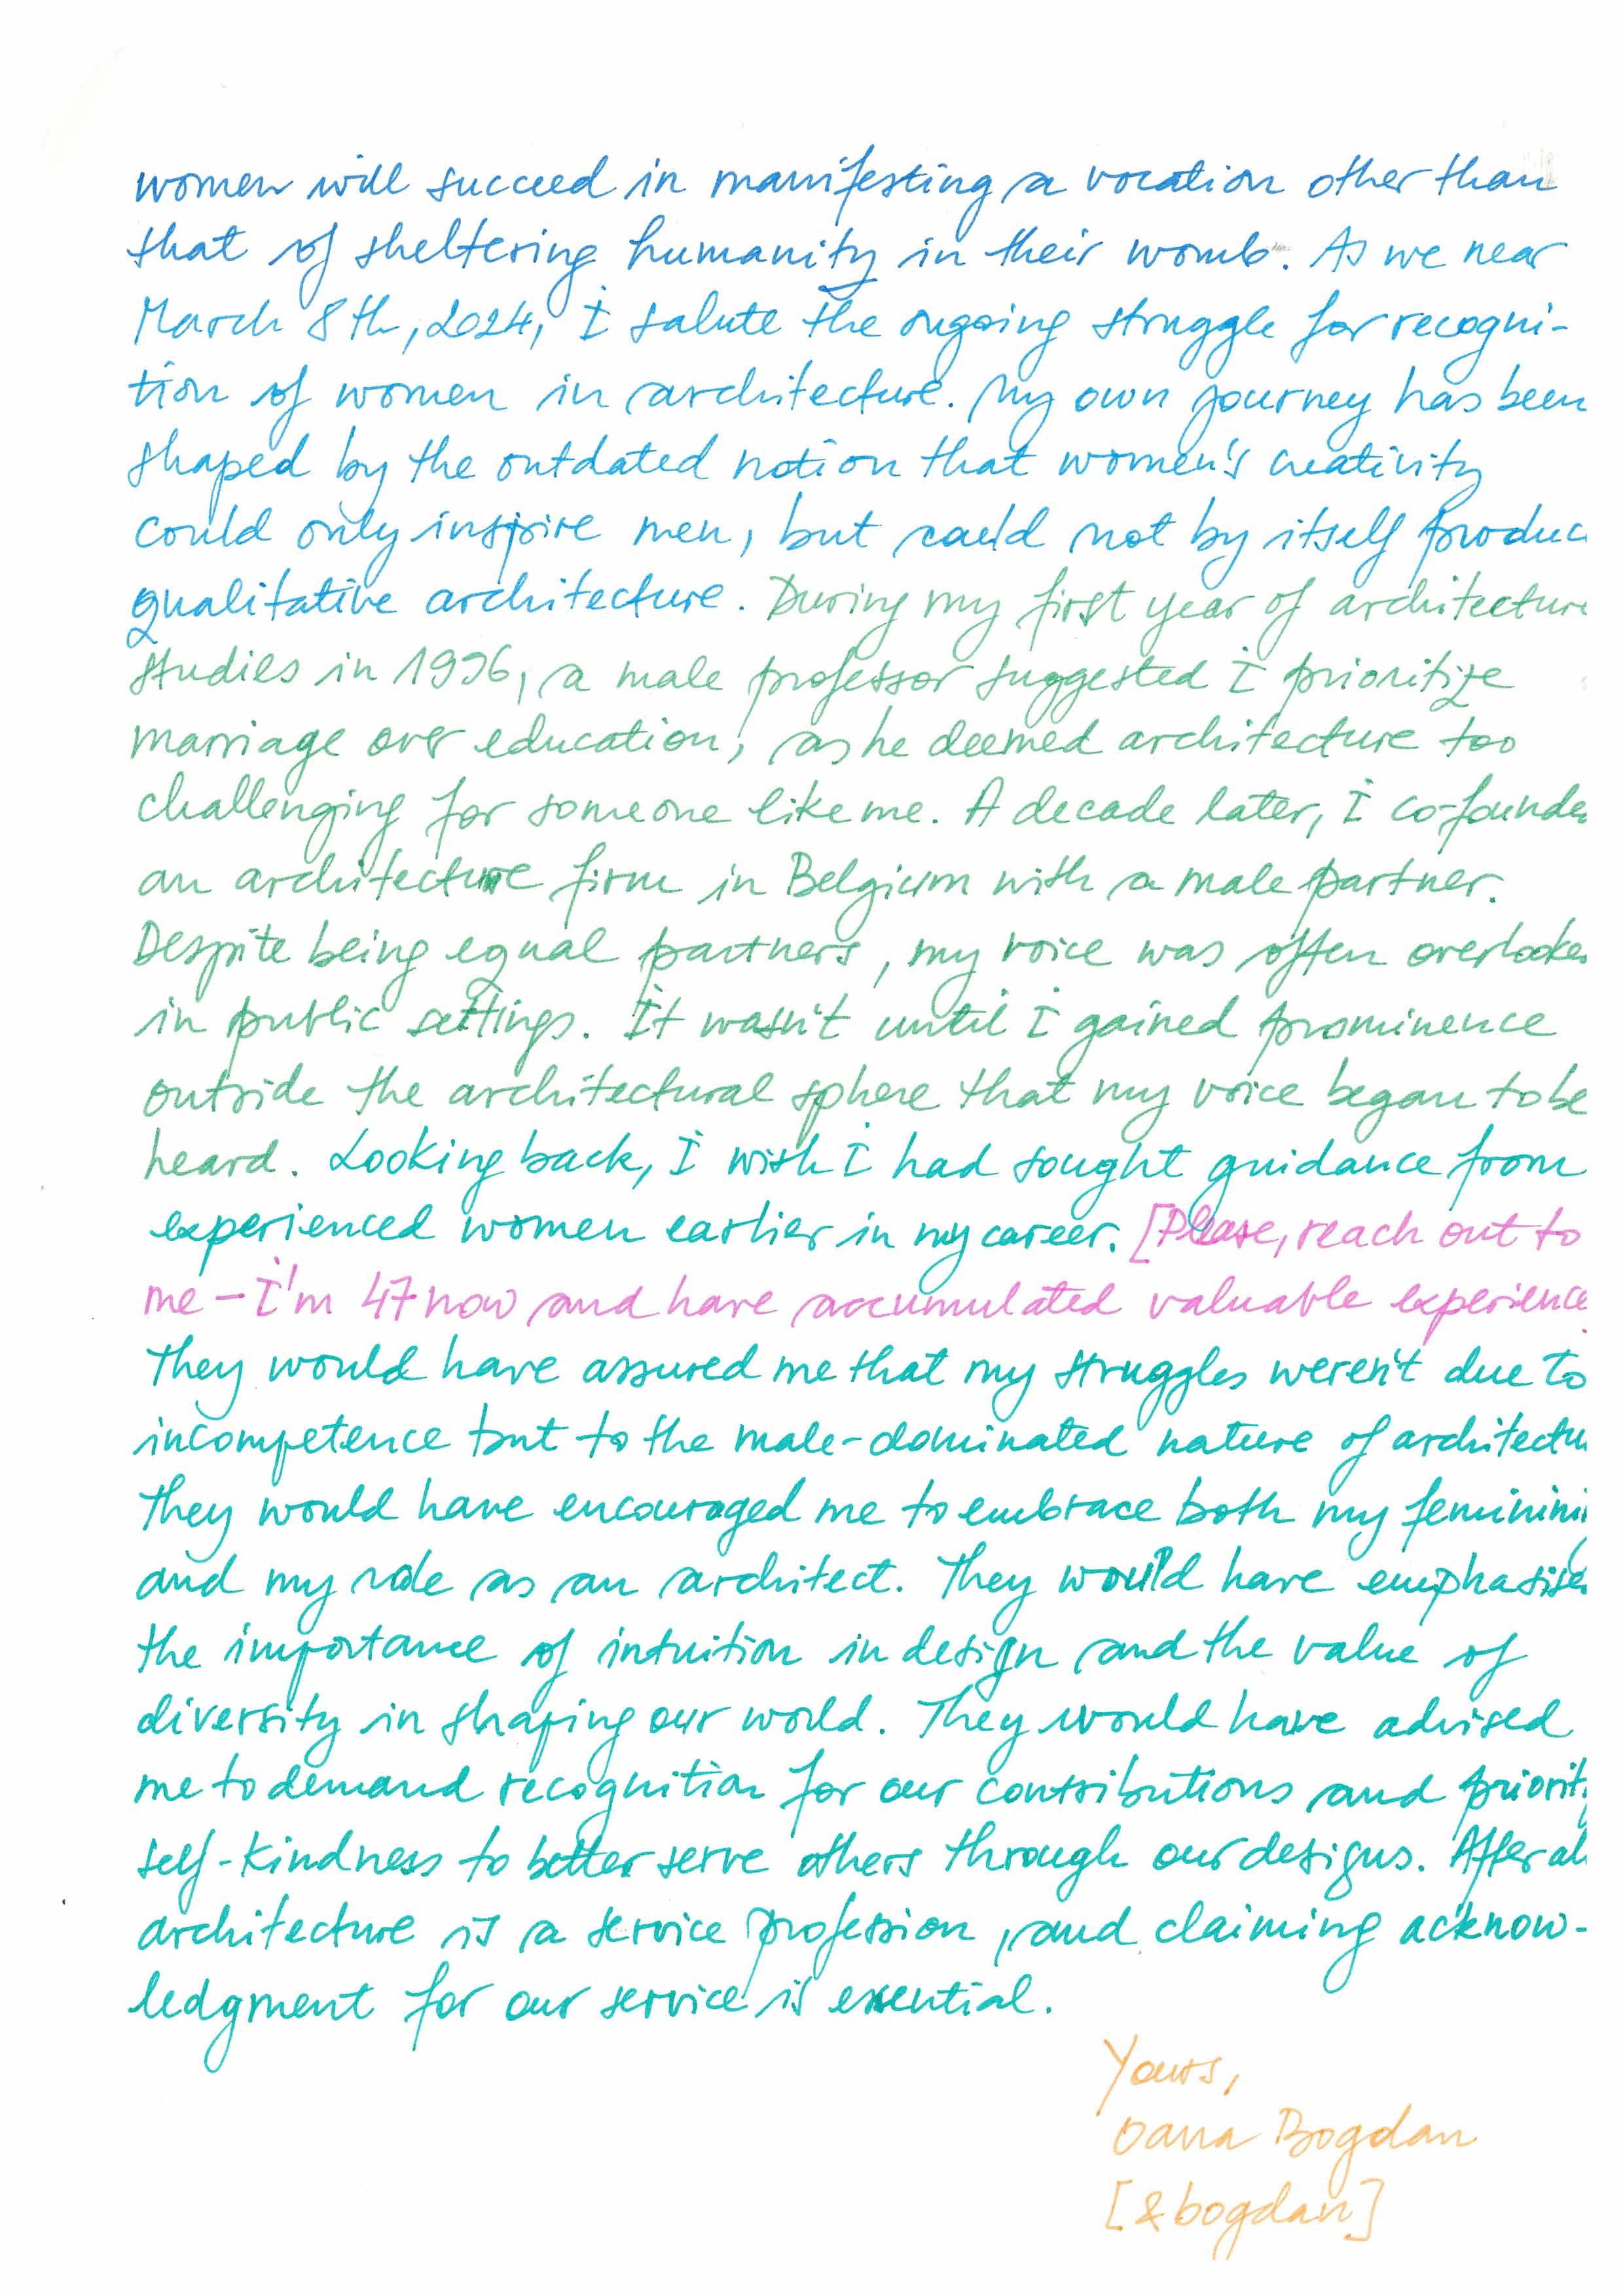 women will succeed in manifesting a vocation other than
that of sheltering humanity in their womb. As we near
March 8th, 2024, I salute the ongoing struggle for recogni-
tion of women in architecture. My own journey has been
shaped by the outdated notion that women's creativity
could only inspire men, but could not by itself produc
qualitative architecture. During my first year of architecture
studies in 1996, a male professor suggested I prioritize
marriage over education, as he deemed architecture too
challenging for someone like me. A decade later, I co-founde
an architecture firm in Belgium with a male partner.
Despite being equal partners, my voice was often overlooke
in public settings. It wasn't until I gained prominence
outside the architectural sphere that my voice began to be
heard. Looking back, I wish I had sought guidance from
experienced women earlier in my career. [Please, reach out to
me – I'm 47 now and have accumulated valuable experience
They would have assured me that my struggles weren't due to
incompetence but to the male-dominated nature of architectu
They would have encouraged me to embrace both my feminini
and my role as an architect. They would have emphasise
the importance of intuition in design and the value of
diversity in shaping our world. They would have advised
me to demand recognition for our contributions and priorit
self-kindness to better serve others through our designs. After al
architecture is a service profession, and claiming acknow-
ledgment for our service is essential.
Yours,
Oana Bogdan
[&bogdan]